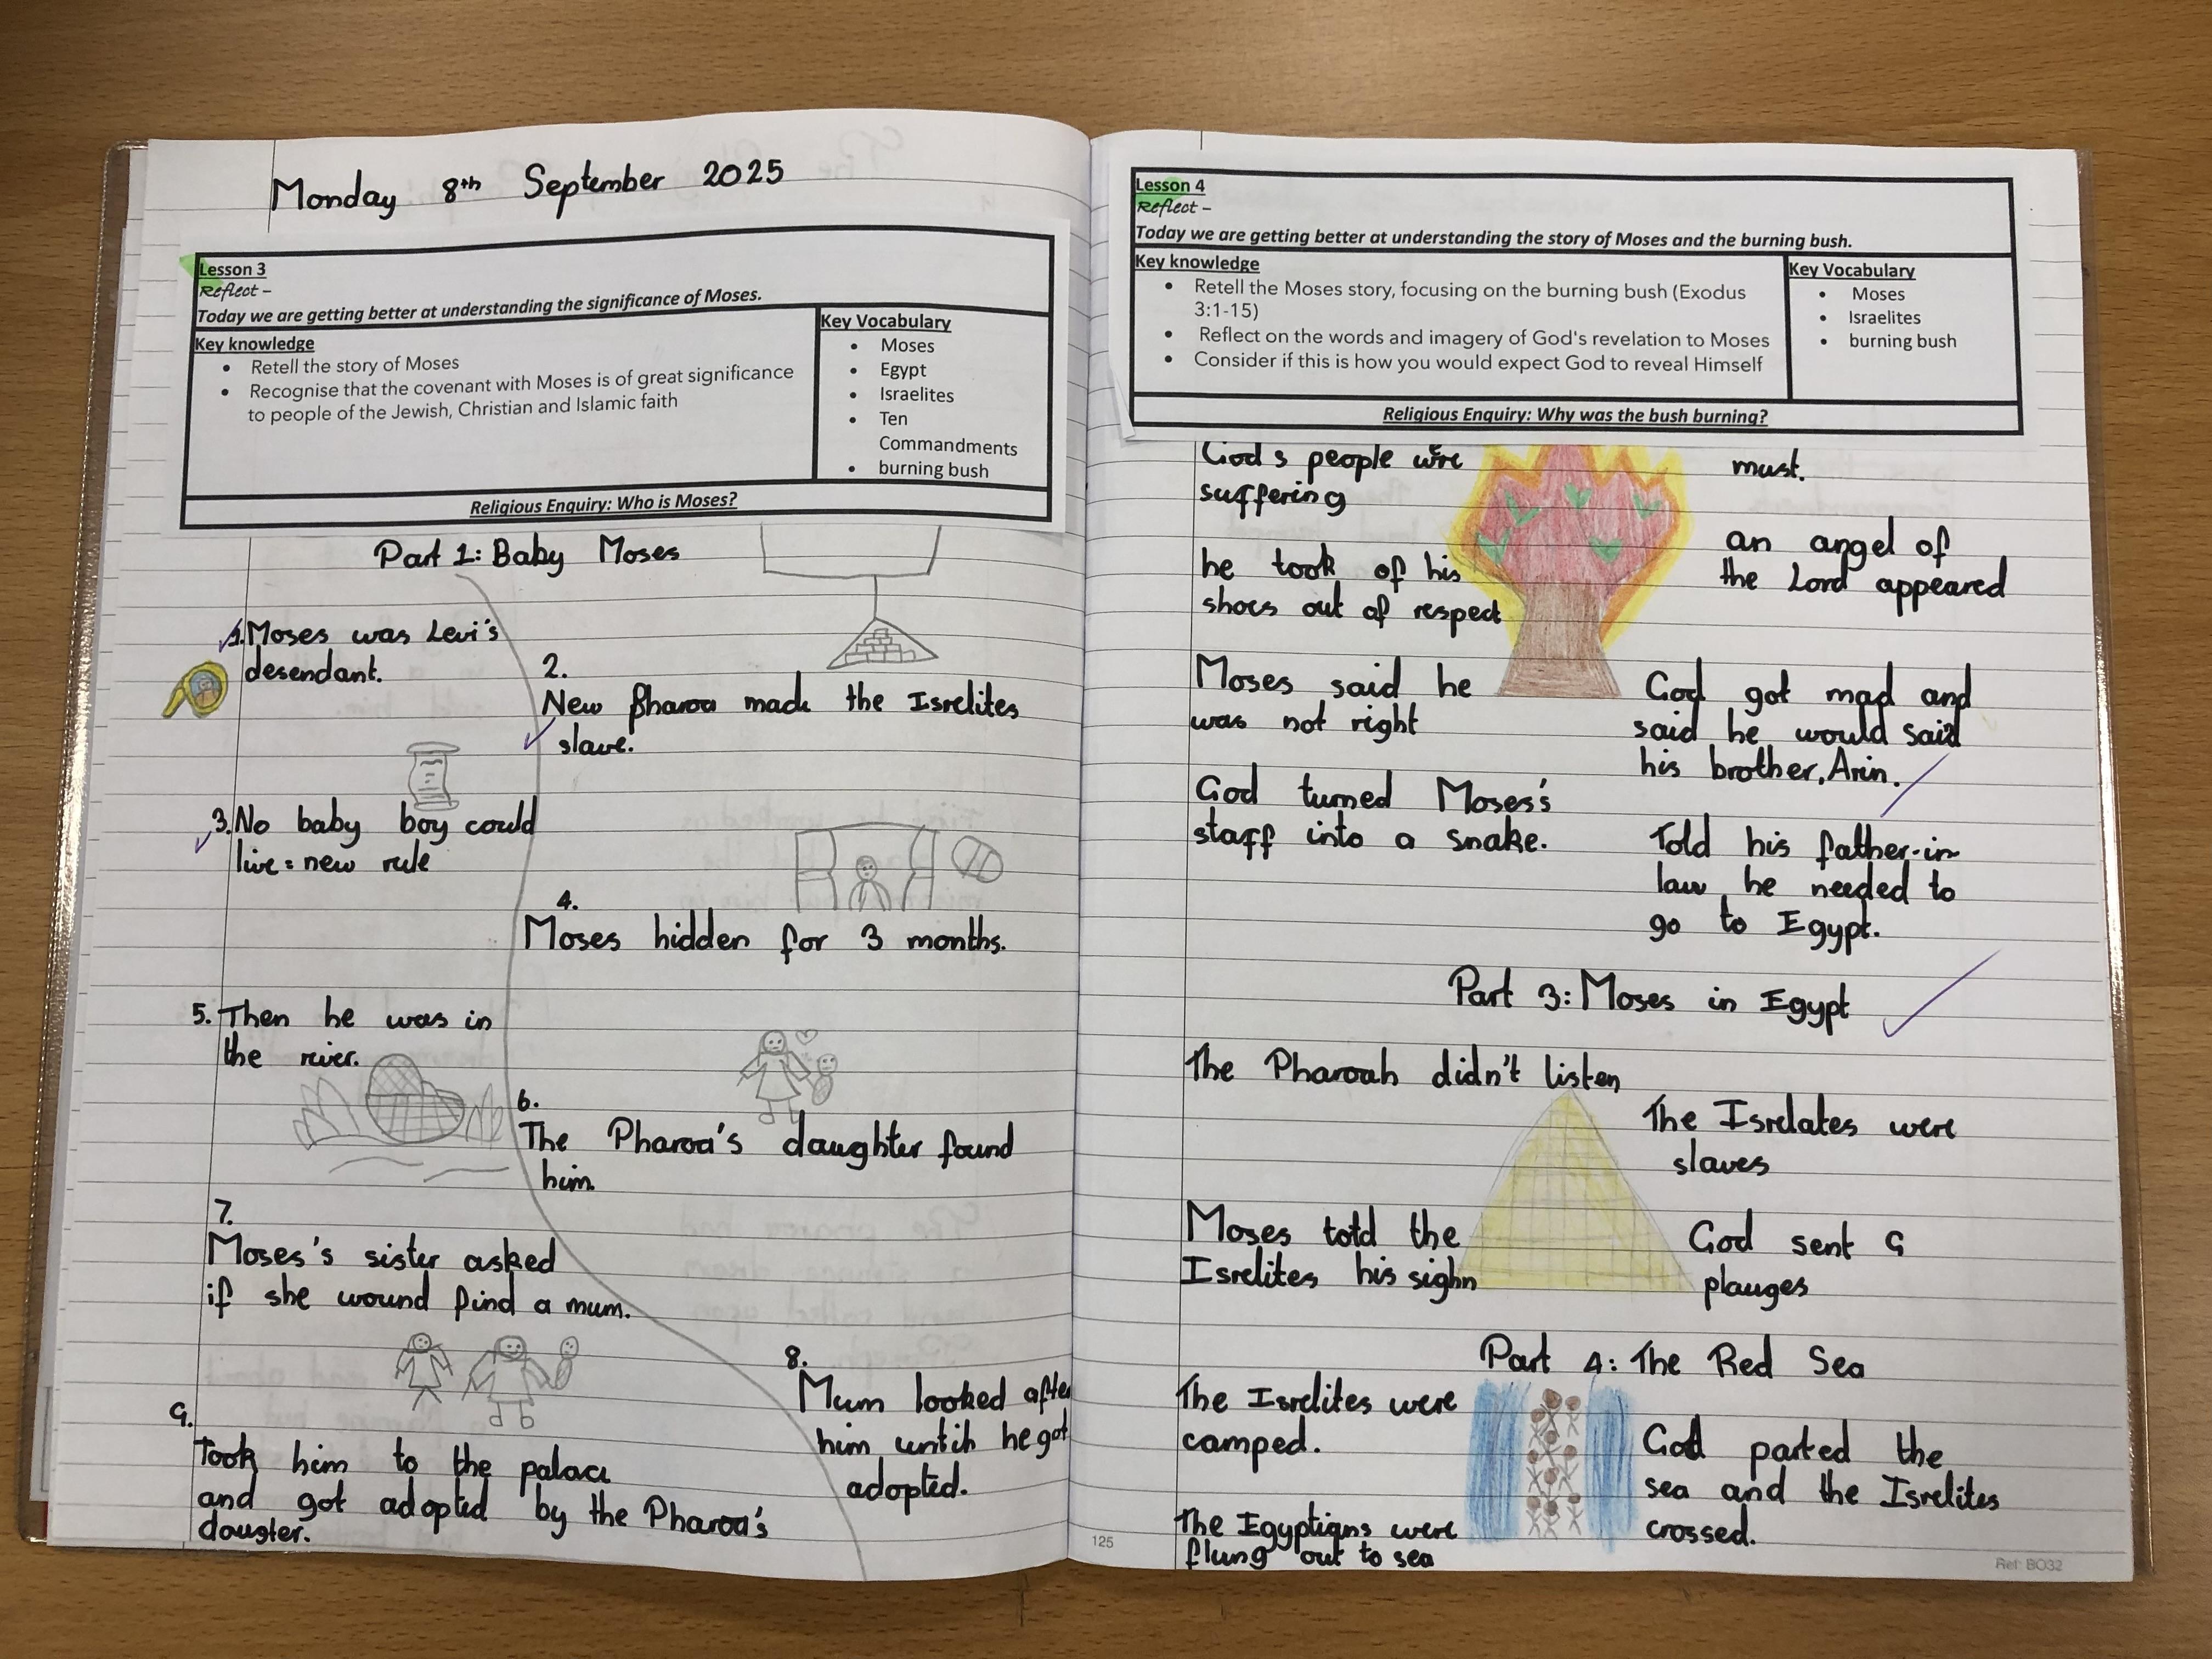 Monday 8th September 2025
Lesson 3
Reflect -
Today we are getting better at understanding the significance of Moses.
Key knowledge
• Retell the story of Moses
• Recognise that the covenant with Moses is of great significance
to people of the Jewish, Christian and Islamic faith
Key Vocabulary
• Moses
• Egypt
• Israelites
• Ten
Commandments
• burning bush
Religious Enquiry: Who is Moses?
Part 1: Baby Moses
1. Moses was Levi's
desendant.
2.
New Pharoa made the Isrelites
slave.
3. No baby boy could
live = new rule
4.
Moses hidden for 3 months.
5. Then he was in
the river.
6.
The Pharoa's daughter found
him.
7.
Moses's sister asked
if she wound find a mum.
8.
Mum looked after
him untih he got
adopted.
9.
Took him to the palace
and got adopted by the Pharoa's
dougter.
Lesson 4
Reflect -
Today we are getting better at understanding the story of Moses and the burning bush.
Key knowledge
• Retell the Moses story, focusing on the burning bush (Exodus
3:1-15)
• Reflect on the words and imagery of God's revelation to Moses
• Consider if this is how you would expect God to reveal Himself
Key Vocabulary
• Moses
• Israelites
• burning bush
Religious Enquiry: Why was the bush burning?
God s people were
suffering
must.
he took of his
shoes out of respect
an angel of
the Lord appeared
Moses said he
was not right
God got mad and
said he would said
his brother, Arin.
God turned Moses's
staff into a snake.
Told his father-in-
law he needed to
go to Egypt.
Part 3: Moses in Egypt
The Pharoah didn't listen
The Isrelates were
slaves
Moses told the
Isrelites his sighn
God sent 9
plauges
Part 4: The Red Sea
The Isrelites were
camped.
God parted the
sea and the Isrelites
crossed.
The Egyptians were
flung out to sea
125
Ref: BO32